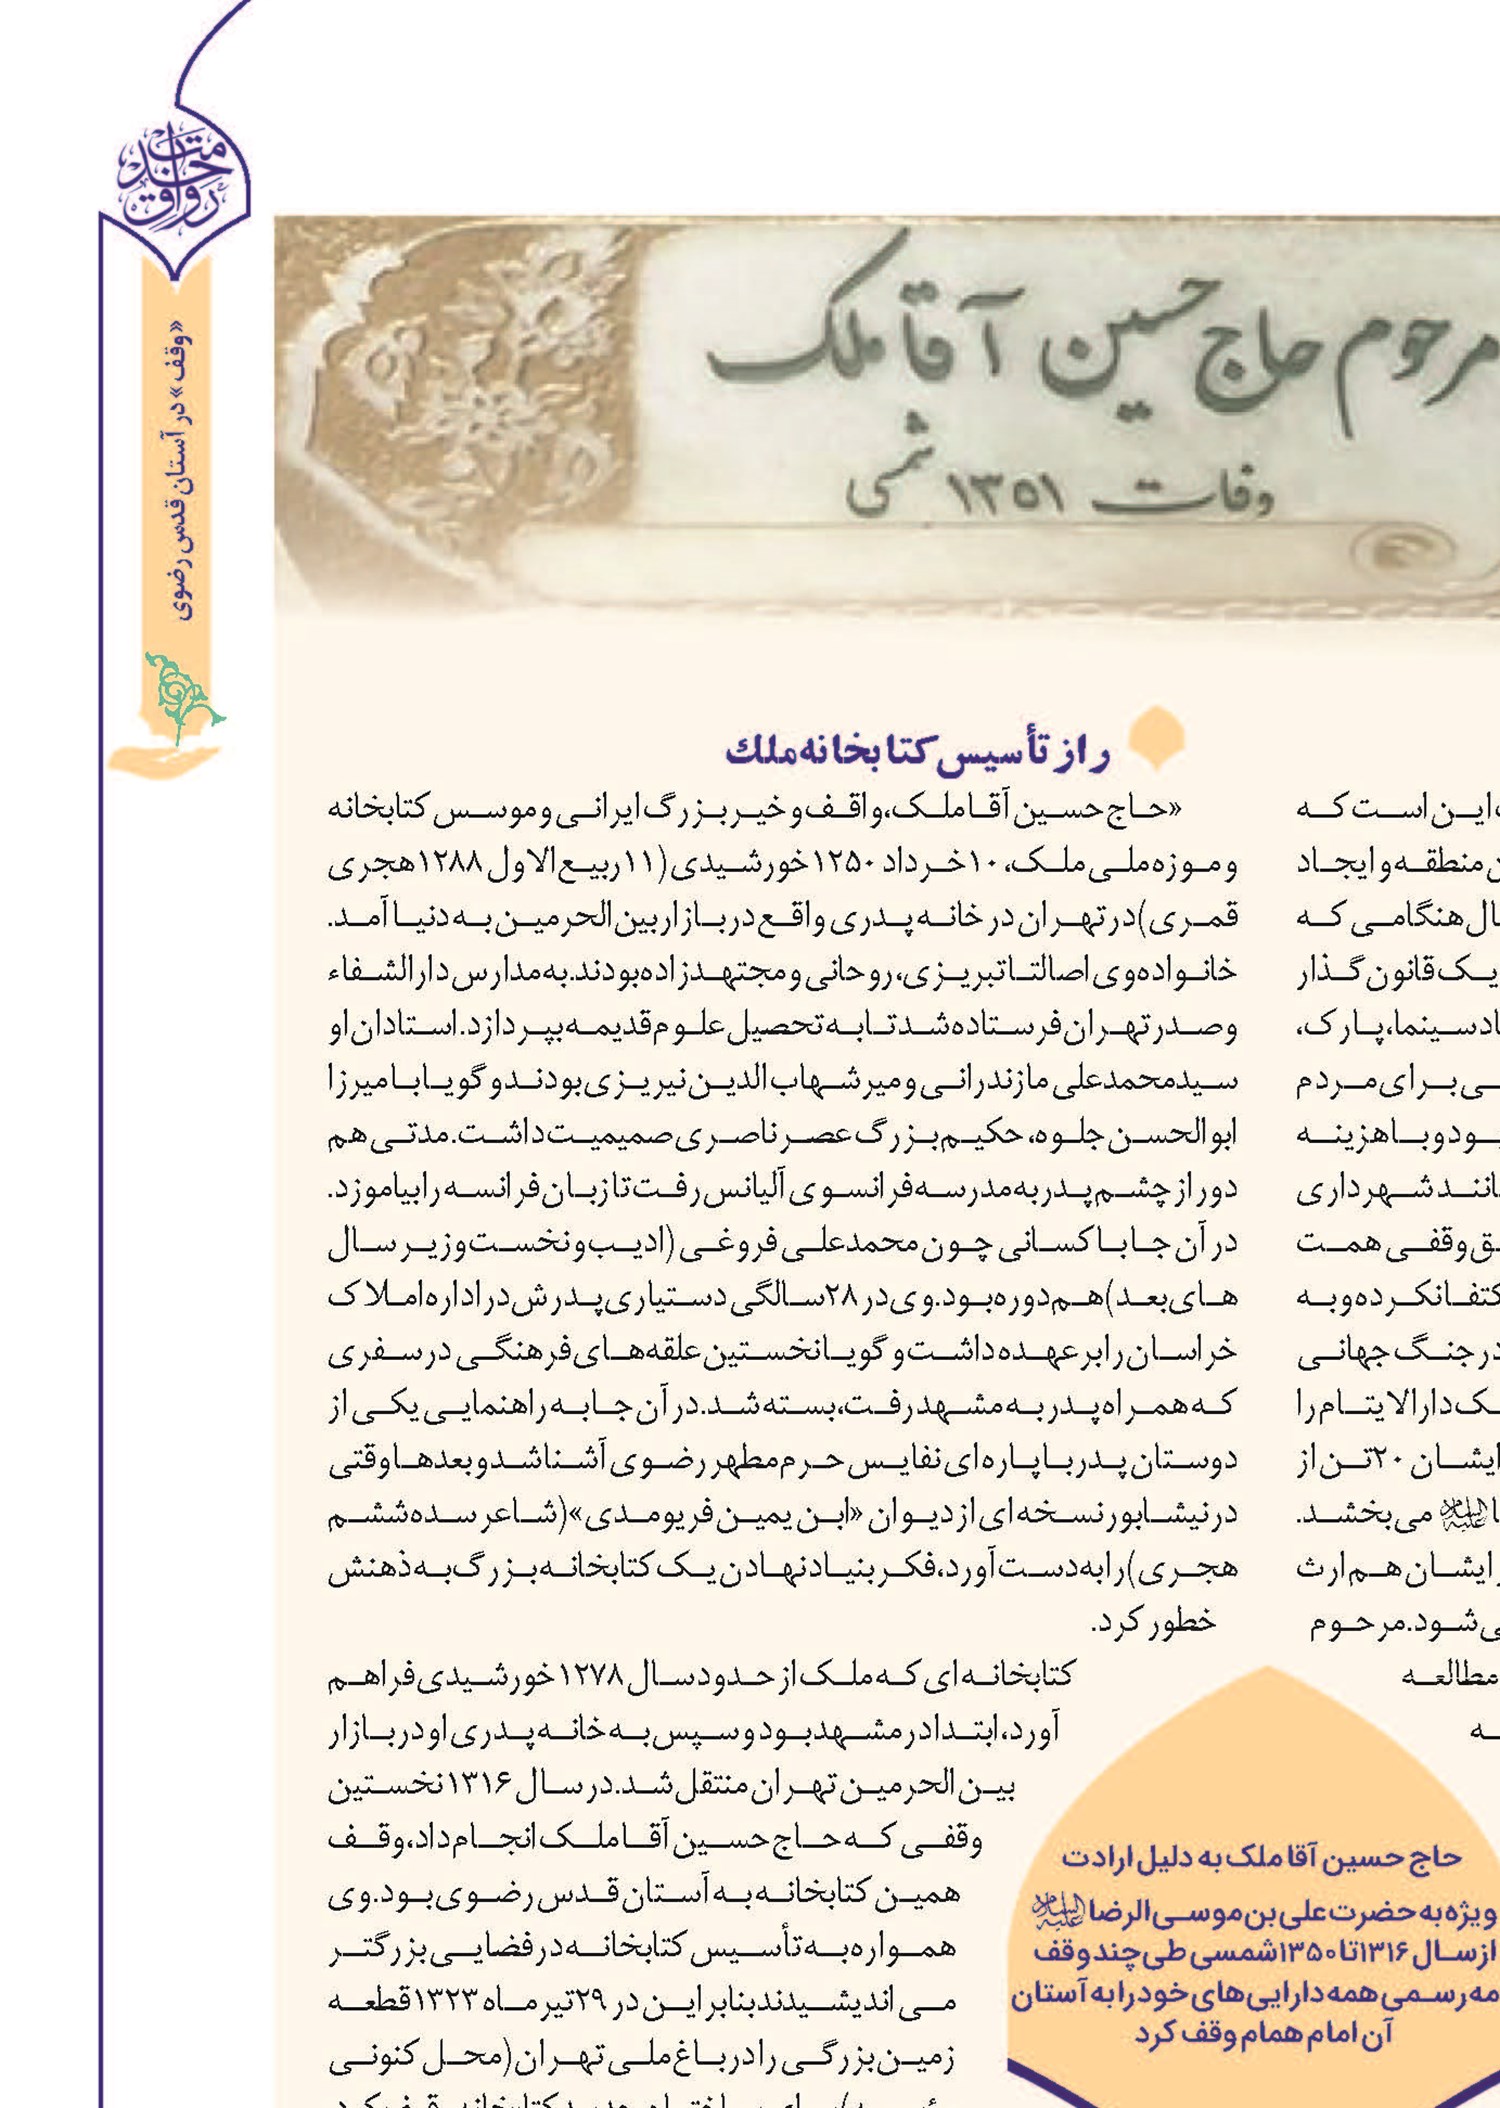 رواق خدمت
«وقف» در آستان قدس رضوی
مرحوم حاج حسین آقا ملک
وفات ۱۳۵۱ شمسی
این است که
منطقه و ایجاد
هنگامی که
یک قانون گذار
سینما، پارک،
برای مردم
بود و با هزینه
مانند شهرداری
وقفی همت
اکتفا نکرده و به
در جنگ جهانی
دارالایتام را
ایشان ۲۰ تن از
می بخشد.
ایشان هم ارث
می شود. مرحوم
مطالعه
راز تأسیس کتابخانه ملك
«حاج حسین آقا ملک، واقف و خیر بزرگ ایرانی و موسس کتابخانه
و موزه ملی ملک، ۱۰ خرداد ۱۲۵۰ خورشیدی (۱۱ ربیع الاول ۱۲۸۸ هجری
قمری) در تهران در خانه پدری واقع در بازار بین الحرمین به دنیا آمد.
خانواده وی اصالتا تبریزی، روحانی و مجتهدزاده بودند. به مدارس دارالشفاء
و صدر تهران فرستاده شد تا به تحصیل علوم قدیمه بپردازد. استادان او
سیدمحمدعلی مازندرانی و میر شهاب الدین نیریزی بودند و گویا با میرزا
ابوالحسن جلوه، حکیم بزرگ عصر ناصری صمیمیت داشت. مدتی هم
دور از چشم پدر به مدرسه فرانسوی آلیانس رفت تا زبان فرانسه را بیاموزد.
در آن جا با کسانی چون محمدعلی فروغی (ادیب و نخست وزیر سال
های بعد) هم دوره بود. وی در ۲۸ سالگی دستیاری پدرش در اداره املاک
خراسان را بر عهده داشت و گویا نخستین علقه های فرهنگی در سفری
که همراه پدر به مشهد رفت، بسته شد. در آن جا به راهنمایی یکی از
دوستان پدر با پاره ای نفایس حرم مطهر رضوی آشنا شد و بعدها وقتی
در نیشابور نسخه ای از دیوان «ابن یمین فریومدی» (شاعر سده ششم
هجری) را به دست آورد، فکر بنیاد نهادن یک کتابخانه بزرگ به ذهنش
خطور کرد.
کتابخانه ای که ملک از حدود سال ۱۲۷۸ خورشیدی فراهم
آورد، ابتدا در مشهد بود و سپس به خانه پدری او در بازار
بین الحرمین تهران منتقل شد. در سال ۱۳۱۶ نخستین
وقفی که حاج حسین آقا ملک انجام داد، وقف
همین کتابخانه به آستان قدس رضوی بود. وی
همواره به تأسیس کتابخانه در فضایی بزرگتر
می اندیشیدند بنابر این در ۲۹ تیر ماه ۱۳۲۳ قطعه
زمین بزرگی را در باغ ملی تهران (محل کنونی
حاج حسین آقا ملک به دلیل ارادت
ویژه به حضرت علی بن موسی الرضا علیه السلام
از سال ۱۳۱۶ تا ۱۳۵۰ شمسی طی چند وقف
رسمی همه دارایی های خود را به آستان
آن امام همام وقف کرد